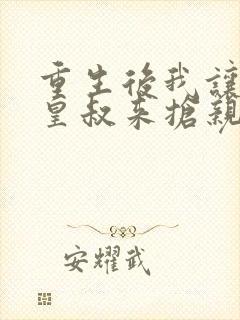 重生後我讓
皇叔来搶親
安耀武